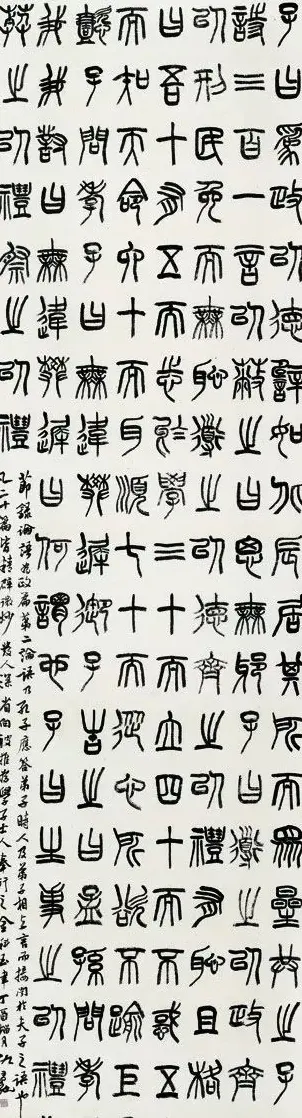 子曰爲政以德辟如北辰居其所而衆星共之子
詩三百一言以蔽之曰思無邪子曰道之以政齊
以刑民免而無恥道之以德齊之以禮有恥且格
曰吾十有五而志於學三十而立四十而不惑五
而知天命六十而耳順七十而從心所欲不踰巨
懿子問孝子曰無違樊遲御子告之曰孟孫問孝
我我對曰無違樊遲曰何謂也子曰生事之以禮
葬之以禮祭之以禮
節錄論語為政篇第二論語乃孔子應答弟子時人及弟子相與言而接聞於夫子之語也
凡二十篇皆精辟微妙發人深省向被推為學子士人奉行之金科玉律丁酉臘月